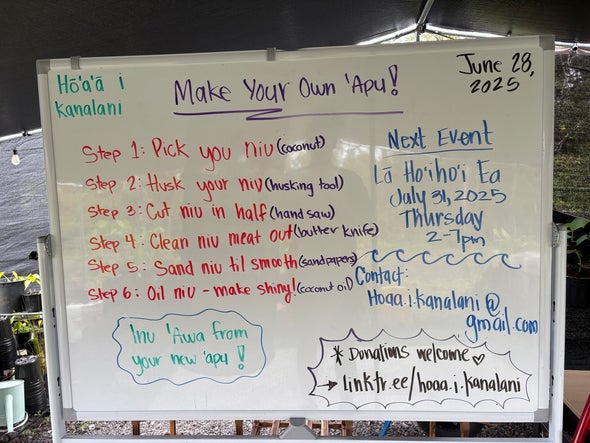 Hō'a'ā i
Kanalani
Make Your Own 'Apu!
June 28,
2025
Step 1: Pick you niu (coconut)
Step 2: Husk your niu (husking tool)
Step 3: Cut niu in half (hand saw)
Step 4: Clean niu meat out (butter knife)
Step 5: Sand niu til smooth (sandpapers)
Step 6: Oil niu - make shiny! (coconut oil)
Inu 'Awa from
your new 'apu!
Next Event
Lā Ho'iho'i Ea
July 31, 2025
Thursday
2-7pm
Contact:
Hoaa.i.Kanalani@
gmail.com
* Donations welcome ♡
→ linktr.ee/hoaa.i.kanalani